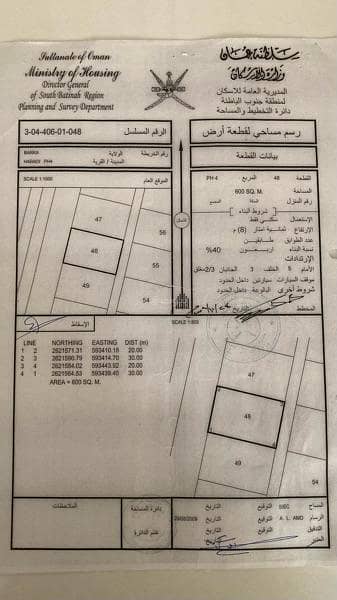 Sultanate of Oman
Ministry of Housing
Director General
of South Batinah Region
Planning and Survey Department
سلطنة عمان
وزارة الإسكان
المديرية العامة للاسكان
لمنطقة جنوب الباطنة
دائرة التخطيط والمساحة
3-04-406-01-048
الرقم المسلسل
رسم مساحي لقطعة أرض
BARKA
الولاية
رقم الخريطة
المدينة / القرية
بيانات القطعة
SCALE
الموقع العام
القطعة 48 المربع PH4
المساحة 600 SQ. M.
رقم المنزل
شروط البناء
الاستعمال سكني فقط
الارتفاع ثمانية امتار (8) م
عدد الطوابق طابقين
نسبة البناء اربعون 40%
الإرتدادات
الأمام 5 الخلف 3 الجانبان
موقف السيارات سيارتين داخل الحدود
شروط أخرى البالوعة داخل الحدود
المخطط
التاريخ
47
48
49
56
55
54
الشمال
الإسقاط
SCALE
LINE NORTHING EASTING DIST (m)
1 2 2621571.31 593410.18 20.00
2 3 2621590.79 593414.70 30.00
3 4 2621584.02 593443.92 20.00
4 1 2621564.53 593439.40 30.00
AREA = 600 SQ. M.
47
48
49
54
الملاحظات
دائرة المساحة
ختم الدائرة
المساح
التوقيع
التاريخ
الرسام
التوقيع
التاريخ
التدقيق
التوقيع
التاريخ
التوقيع
التاريخ